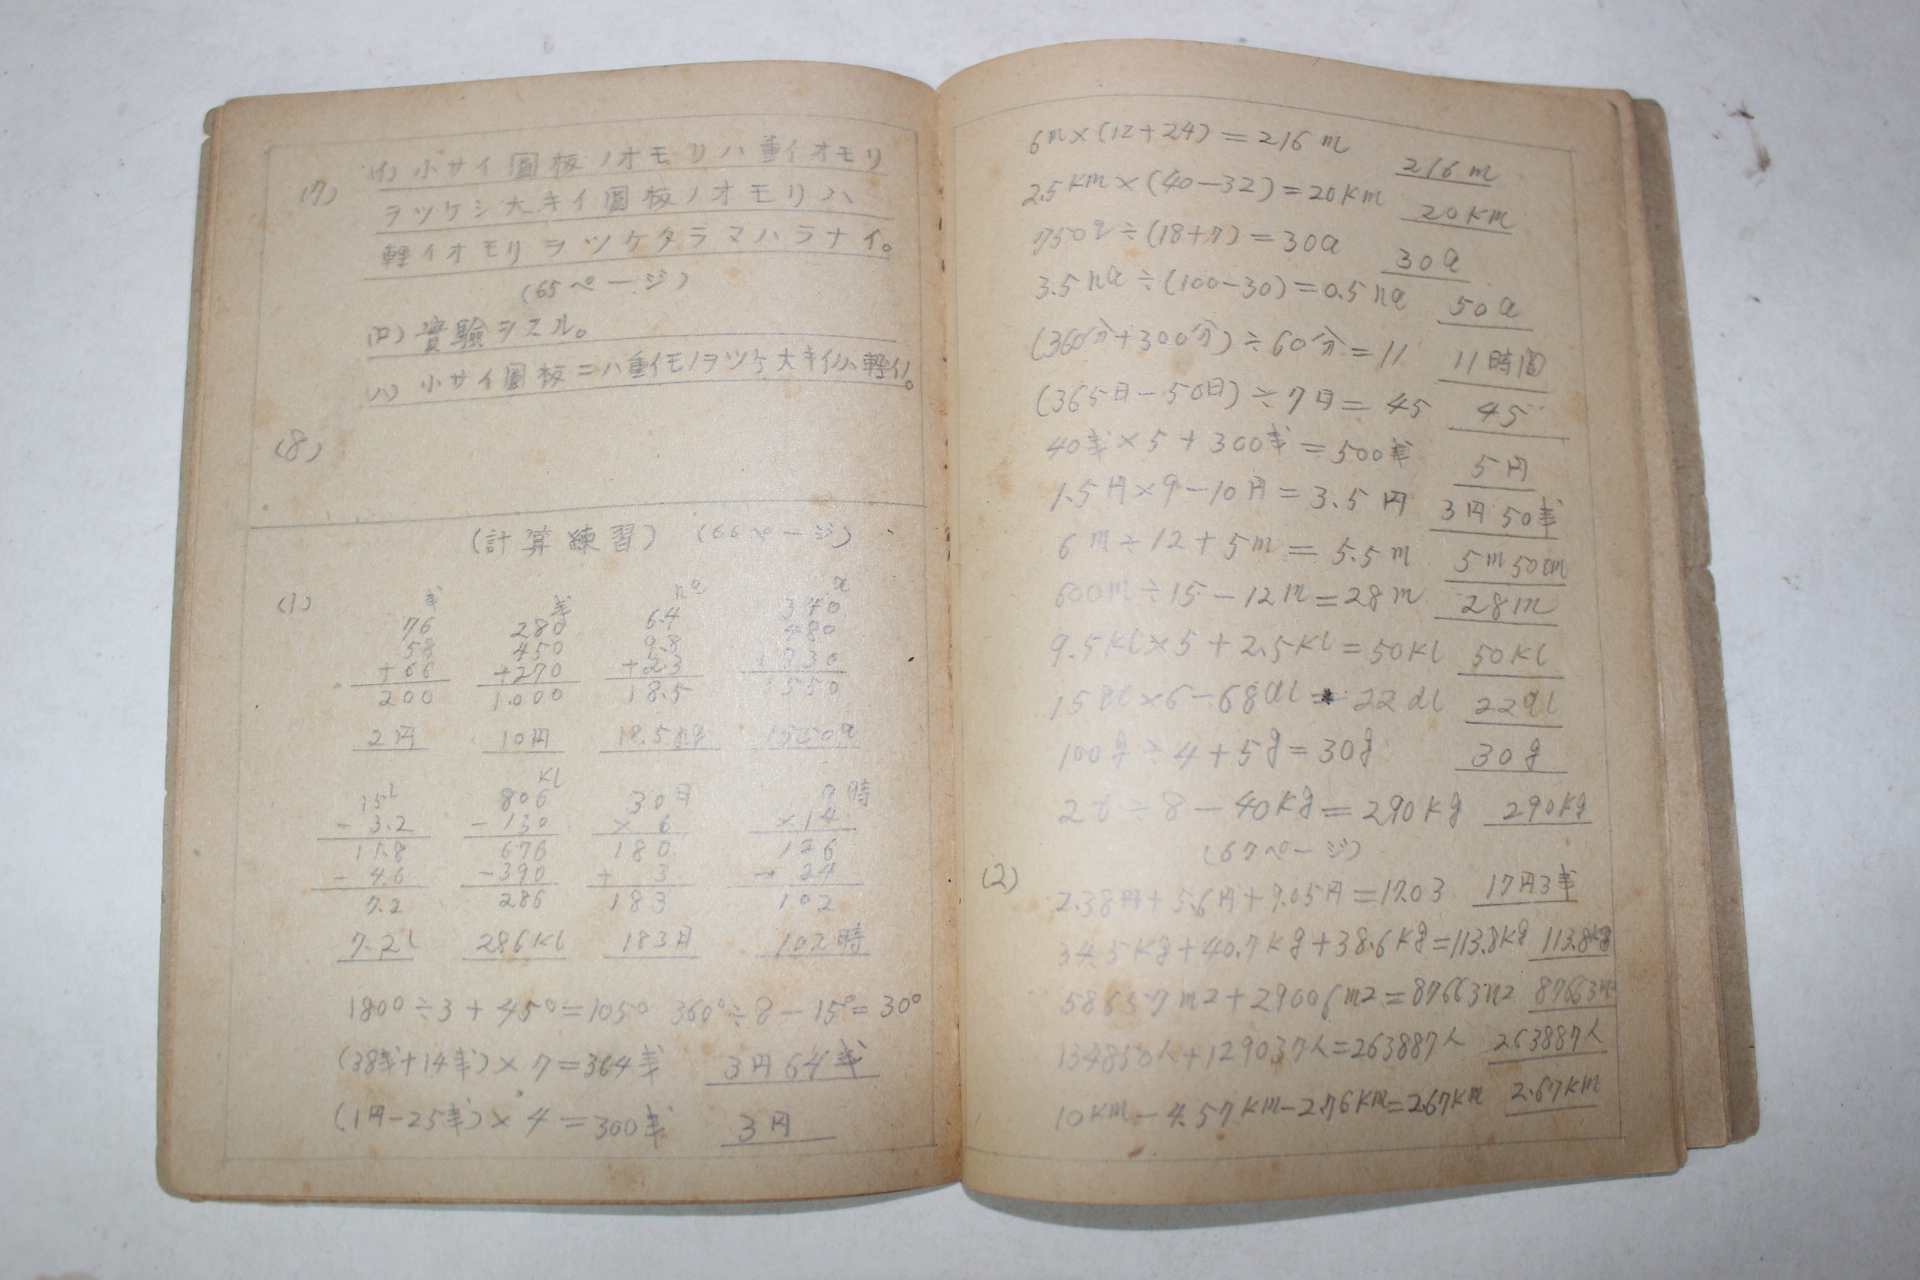 (7) (イ) 小サイ圓板ノオモリハ重イオモリ
ヲツケシ大キイ圓板ノオモリハ
軽イオモリヲツケタラマハラナイ。
(65ページ)
(ロ) 實驗ヲスル。
(ハ) 小サイ圓板ニハ重イモノヲツケ大キイノハ軽イノ。
(8)
(計算練習) (66ページ)
(1)
76 280 6.4 340
58 450 9.8 480
+66 +270 +2.3 +730
200 1.000 18.5 1550
2円 10円 18.5ha 1550a
15l 806kl 30日 9時
-3.2 -130 ×6 ×14
11.8 676 180 126
-4.6 -390 +3 -24
7.2 286 183 102
7.2l 286kl 183日 102時
180°÷3+45°=105° 360°÷8-15°=30°
(38銭+14銭)×7=364銭 3円64銭
(1円-25銭)×4=300銭 3円
6m×(12+24)=216m 216m
2.5km×(40-32)=20km 20km
750a÷(18+7)=30a 30a
3.5ha÷(100-30)=0.5ha 50a
(360分+300分)÷60分=11 11時間
(365日-50日)÷7日=45 45
40銭×5+300銭=500銭 5円
1.5円×9-10円=3.5円 3円50銭
6m÷12+5m=5.5m 5m50cm
600m÷15-12m=28m 28m
9.5kl×5+2.5kl=50kl 50kl
15dl×6-68dl=22dl 22dl
100g÷4+5g=30g 30g
2t÷8-40kg=290kg 290kg
(67ページ)
(2)
2.38円+5.6円+9.05円=17.03 17円3銭
34.5kg+40.7kg+38.6kg=113.8kg 113.8kg
58657m2+29006m2=87663m2 87663m2
134850人+129037人=263887人 263887人
10km-4.57km-2.76km=2.67km 2.67km